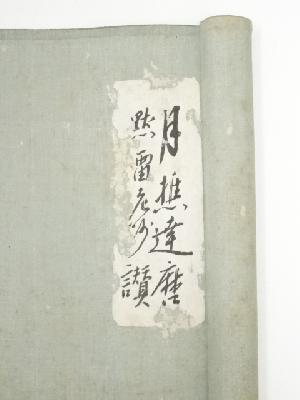 月樵達磨
黙雷老師讃